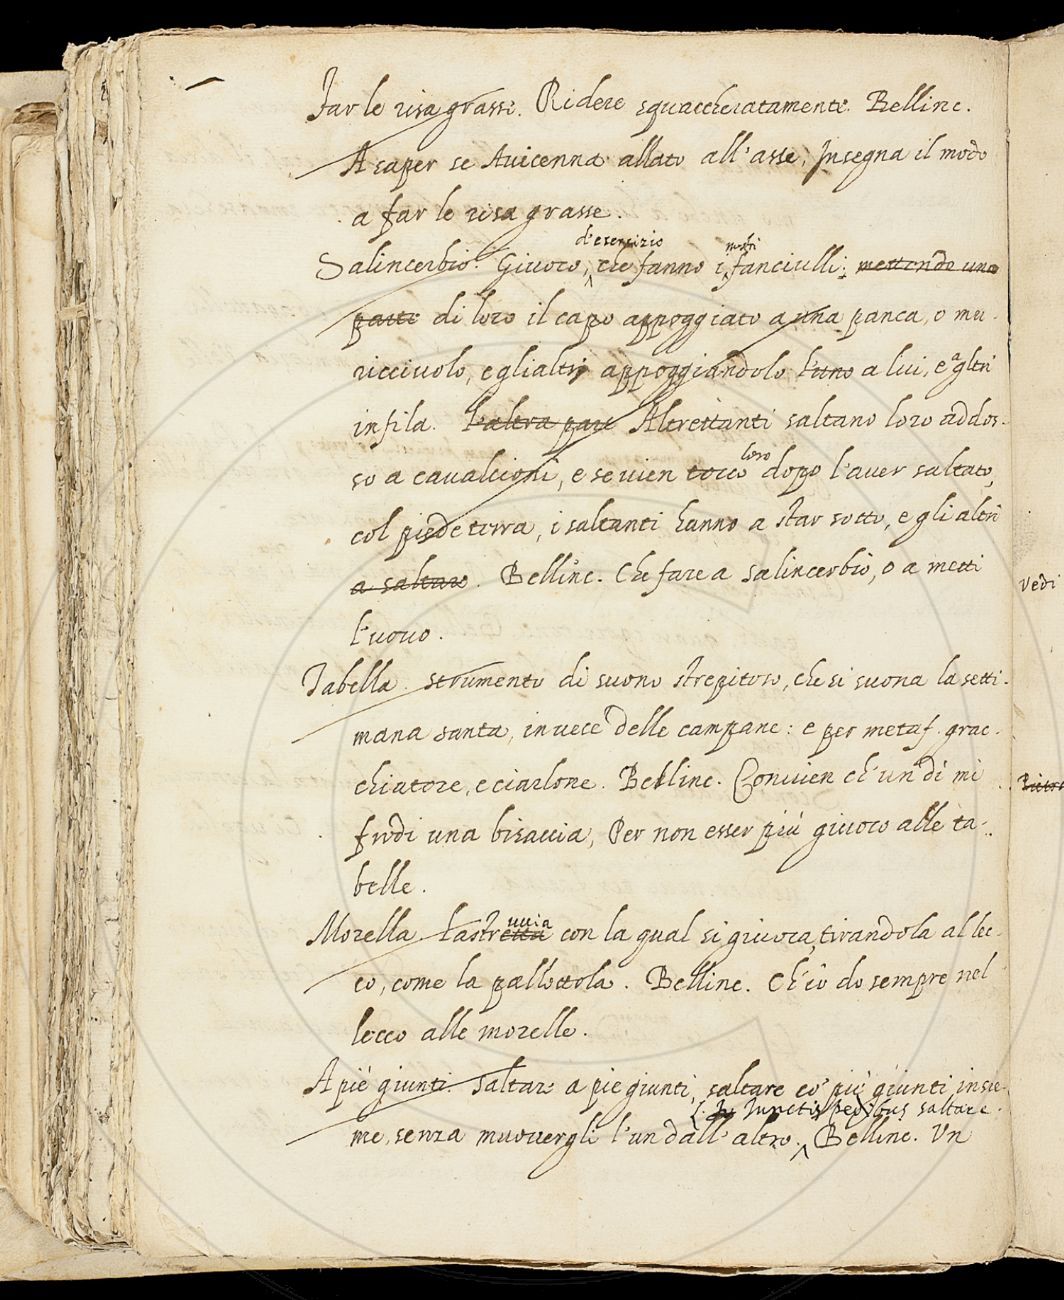 Far le risa grasse. Ridere sguaccheratamente. Bellinc.
A saper se Avicenna allato all'asse, Insegna il modo
a far le risa grasse.
d'esercizio molti
Salincerbio. Giuoco, che fanno i fanciulli; mettendo una
parte di loro il capo appoggiato a una panca, o mu-
ricciuolo, e gli altri appoggiandolo l'uno a lui, e a gltri
in fila. L'altra parte Altrettanti saltano loro addos-
loro
so a cavalcioni, e se vien tocco dopo l'aver saltato,
col piede terra, i saltanti hanno a star sotto, e gli altri
a saltare. Bellinc. Che fare a salincerbio, o a metti
l'uovo.
Tabella. strumento di suono strepitoso, che si suona la setti-
mana santa, in vece delle campane: e per metaf. grac-
chiatore, e ciarlone. Bellinc. Convien ch'un dì mi
frodi una bisaccia, Per non esser più giuoco alle ta-
belle.
uccia
Morella Lastretta con la qual si giuoca, tirandola al lec-
co, come la pallottola. Bellinc. Ch'io do sempre nel
lecco alle morelle.
A piè giunti saltare a pie giunti, saltare co' piè giunti insie-
L. Junctis pedibus saltare.
me, senza muovergli l'un dall'altro. Bellinc. Un
vedi